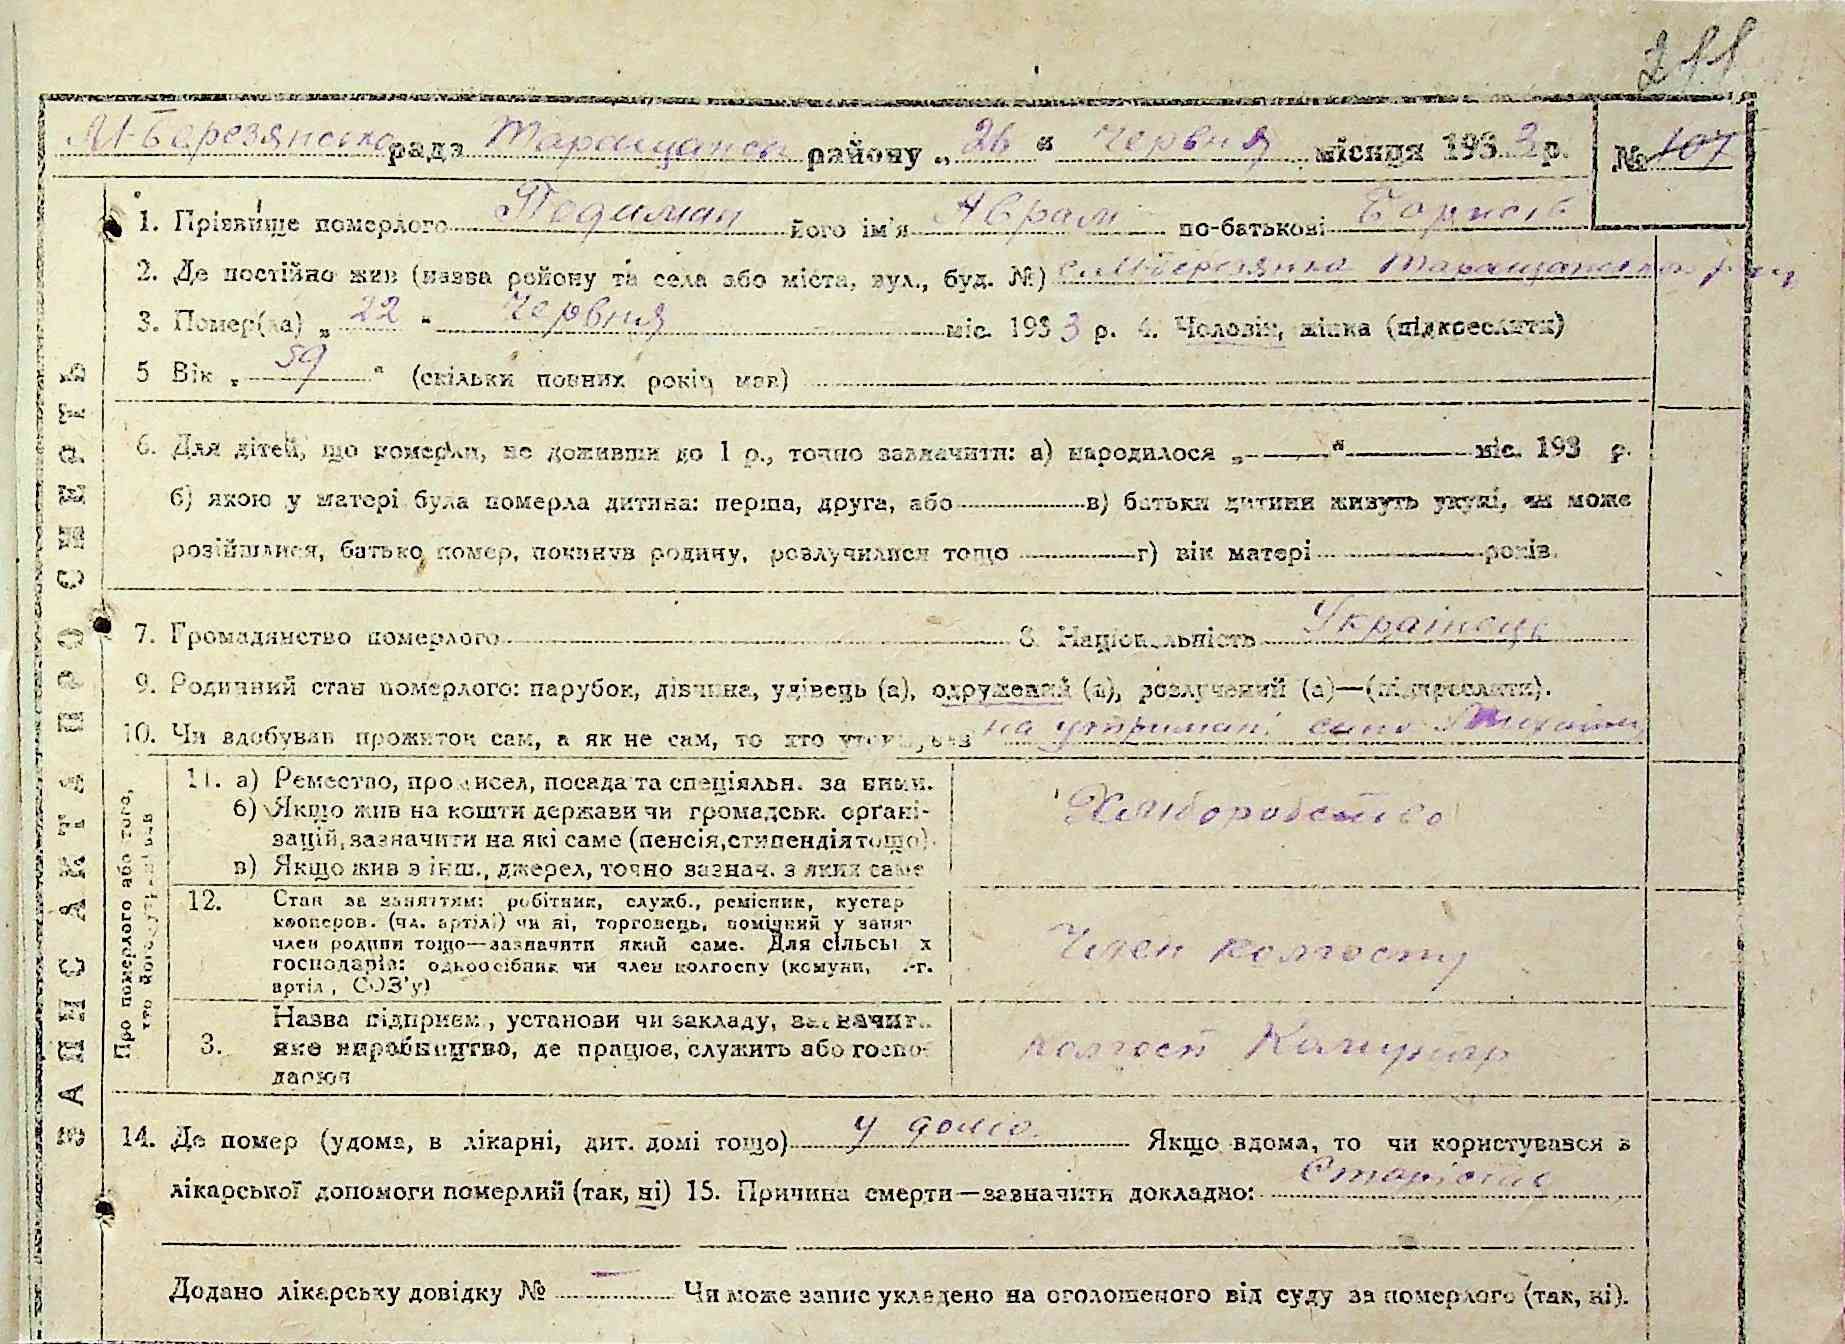 211
М-Березянська рада Таращанськ району „26“ Червня місяця 1933 р. № 107
1. Прізвище померлого його ім'я Аврам по-батькові Борисів
2. Де постійно жив (назва району та села або міста, вул., буд. №) с. М-Березянка Таращанського
3. Помер(ла) „22“ Червня міс. 1933 р. 4. Чоловік, жінка (підкреслити)
5 Вік „59“ (скільки повних років мав)
6. Для дітей, що померли, не доживши до 1 р., точно зазначити: а) народилося „——“ —— міс. 193 р.
б) якою у матері була померла дитина: перша, друга, або в) батьки дитини живуть укупі, чи може
розійшлися, батько помер, покинув родину, розлучилися тощо г) вік матері років.
7. Громадянство померлого 8. Національність Українець
9. Родинний стан померлого: парубок, дівчина, удівець (а), одружений (а), розлучений (а)—(підкреслити).
10. Чи здобував прожиток сам, а як не сам, то хто утримував на утримані сина
ЗАПИС АКТА ПРО СМЕРТЬ
Про померлого або того, хто його утримував
11. а) Ремество, промисел, посада та спеціяльн. за ними.
б) Якщо жив на кошти держави чи громадськ. органі-
зацій, зазначити на які саме (пенсія, стипендія тощо).
в) Якщо жив з інш., джерел, точно зазнач. з яких саме
Хліборобство
12. Стан за заняттям: робітник, служб., ремісник, кустар
кооперов. (чл. артілі) чи ні, торговець, помічний у занят
член родини тощо—зазначити який саме. Для сільськ х
господарів: одноосібник чи член колгоспу (комуни, с-г.
артіл, СОЗ'у)
Член колгоспу
3. Назва підприєм., установи чи закладу, зазначит.
яке виробництво, де працює, служить або госпо-
дарює
колгосп Комунар
14. Де помер (удома, в лікарні, дит. домі тощо) у дома. Якщо вдома, то чи користувався з
лікарської допомоги померлий (так, ні) 15. Причина смерти—зазначити докладно: Старість
Додано лікарську довідку № — Чи може запис укладено на оголошеного від суду за померлого (так, ні).